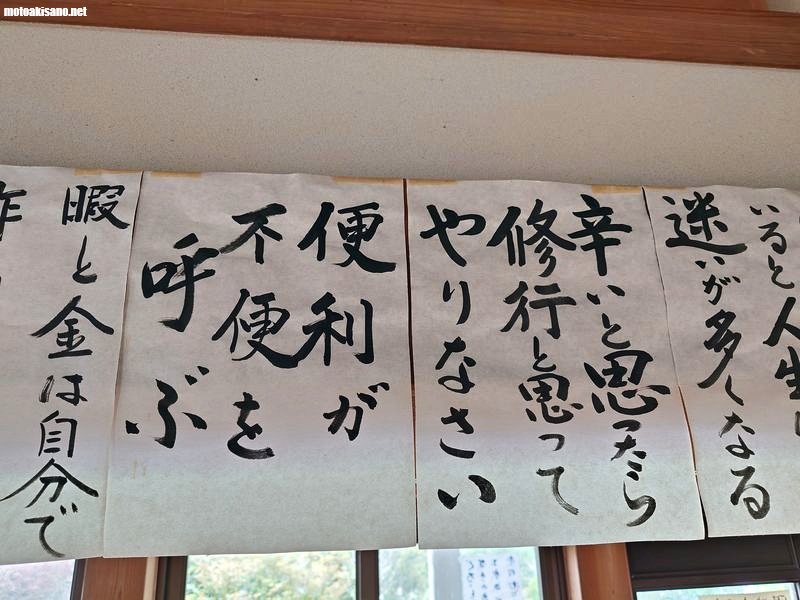 motoakisano.net
いると人生
迷いが多くなる
辛いと思ったら
修行と思って
やりなさい
便利が
不便を
呼ぶ
暇と金は自分で